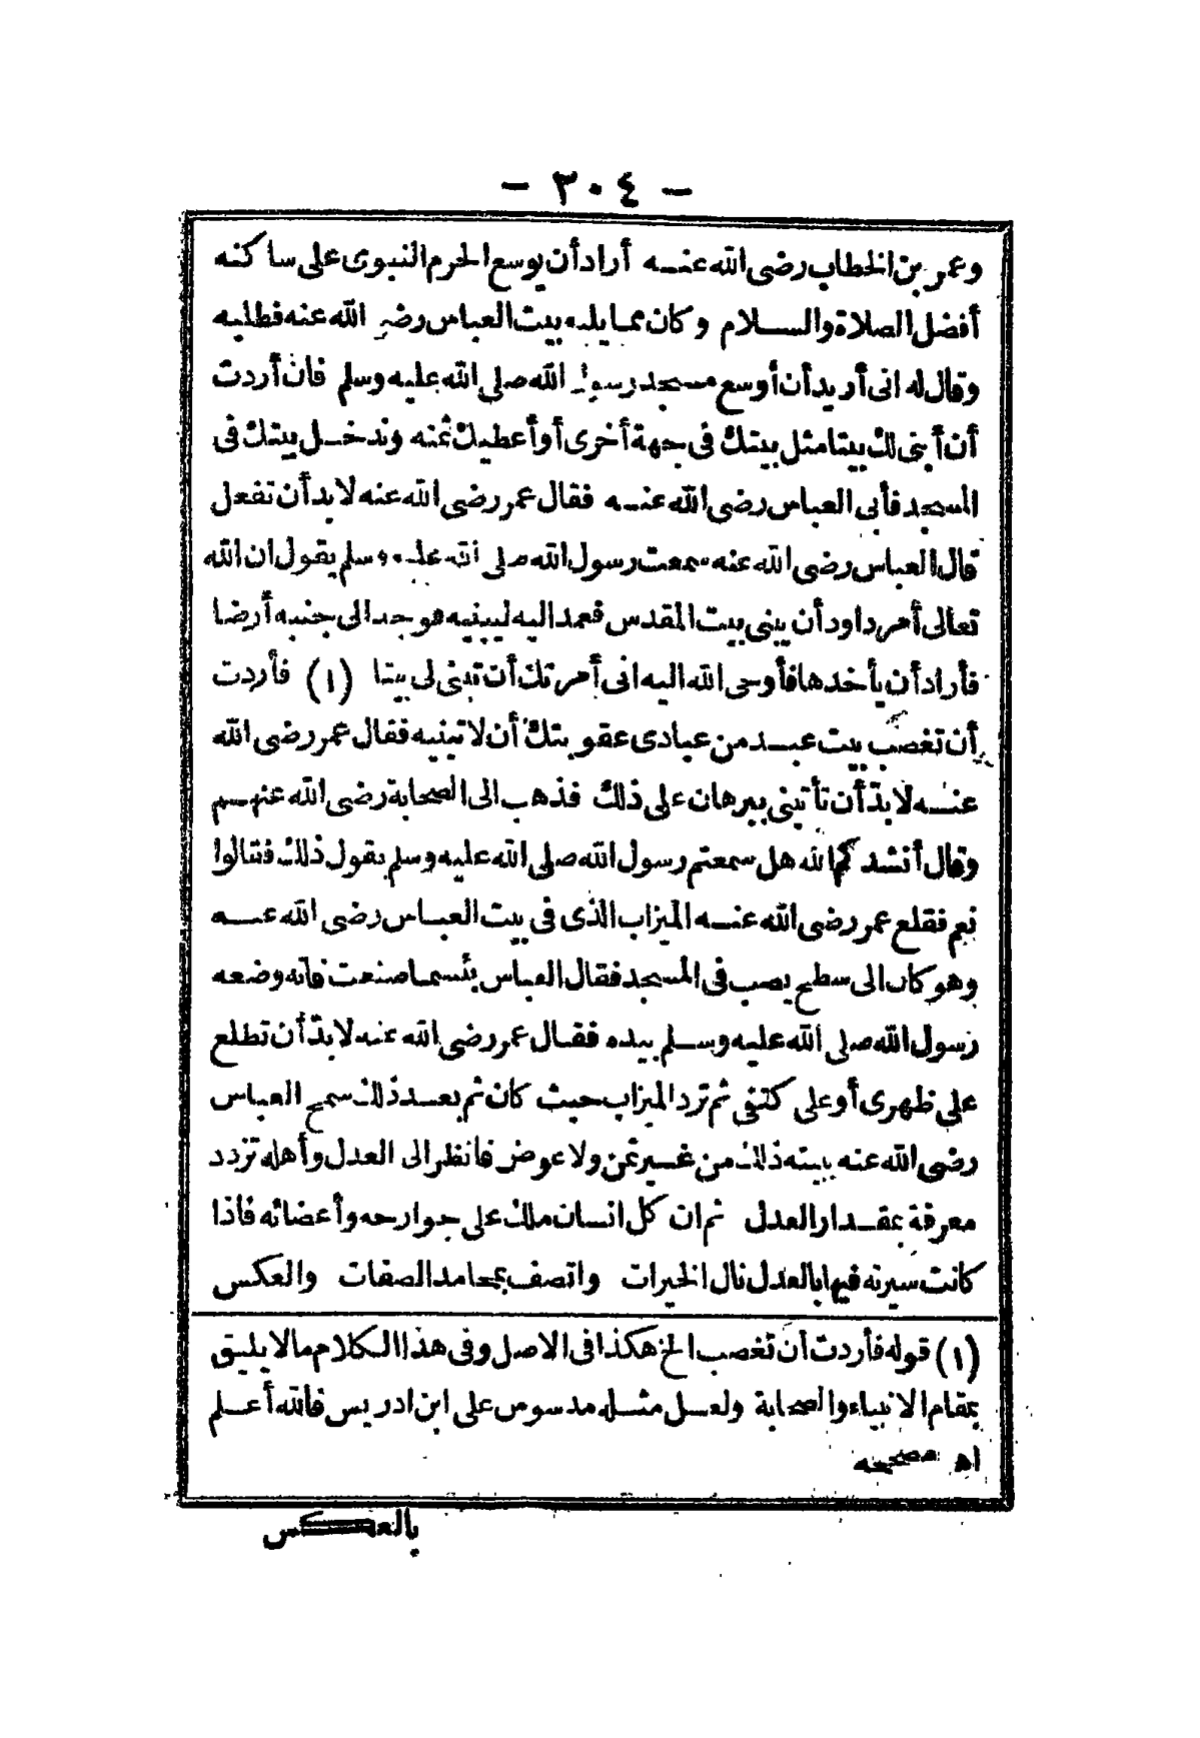 - ٣٠٤ -
وعمر بن الخطاب رضى الله عنه أراد أن يوسع الحرم النبوى على ساكنه
أفضل الصلاة والسلام وكان مما يليه بيت العباس رضى الله عنه فطلبه
وقال له انى أريد أن أوسع مسجد رسول الله صلى الله عليه وسلم فان أردت
أن أبنى لك بيتا مثل بيتك فى جهة أخرى أو أعطيك ثمنه وندخل بيتك فى
المسجد فأبى العباس رضى الله عنه فقال عمر رضى الله عنه لابد أن تفعل
قال العباس رضى الله عنه سمعت رسول الله صلى الله عليه وسلم يقول ان الله
تعالى أمر داود أن يبنى بيت المقدس فعمد اليه ليبنيه فوجد الى جنبه أرضا
فأراد أن يأخدها فأوحى الله اليه انى أمرتك أن تبنى لى بيتا (١) فأردت
أن تغصب بيت عبد من عبادى عقوبتك أن لا تبنيه فقال عمر رضى الله
عنه لا بدّ أن تأتينى ببرهان على ذلك فذهب الى الصحابة رضى الله عنهم
وقال أنشدكم الله هل سمعتم رسول الله صلى الله عليه وسلم يقول ذلك فقالوا
نعم فقلع عمر رضى الله عنه الميزاب الذى فى بيت العباس رضى الله عنه
وهو كان الى سطح يصب فى المسجد فقال العباس بئسما صنعت فانه وضعه
رسول الله صلى الله عليه وسلم بيده فقال عمر رضى الله عنه لا بدّ أن تطلع
على ظهرى أو على كتفى ثم ترد الميزاب حيث كان ثم بعد ذلك سمح العباس
رضى الله عنه ببيته ذلك من غير ثمن ولا عوض فانظر الى العدل وأهله تزدد
معرفة بمقدار العدل ثم ان كل انسان ملك على جوارحه وأعضائه فاذا
كانت سيرته فيها بالعدل نال الخيرات واتصف بمحامد الصفات والعكس
(١) قوله فأردت أن تغصب الخ هكذا فى الاصل وفى هذا الكلام مالا يليق
بمقام الانبياء والصحابة ولعل مثله مدسوس على ابن ادريس فالله أعلم
اه مصححه
بالعكس